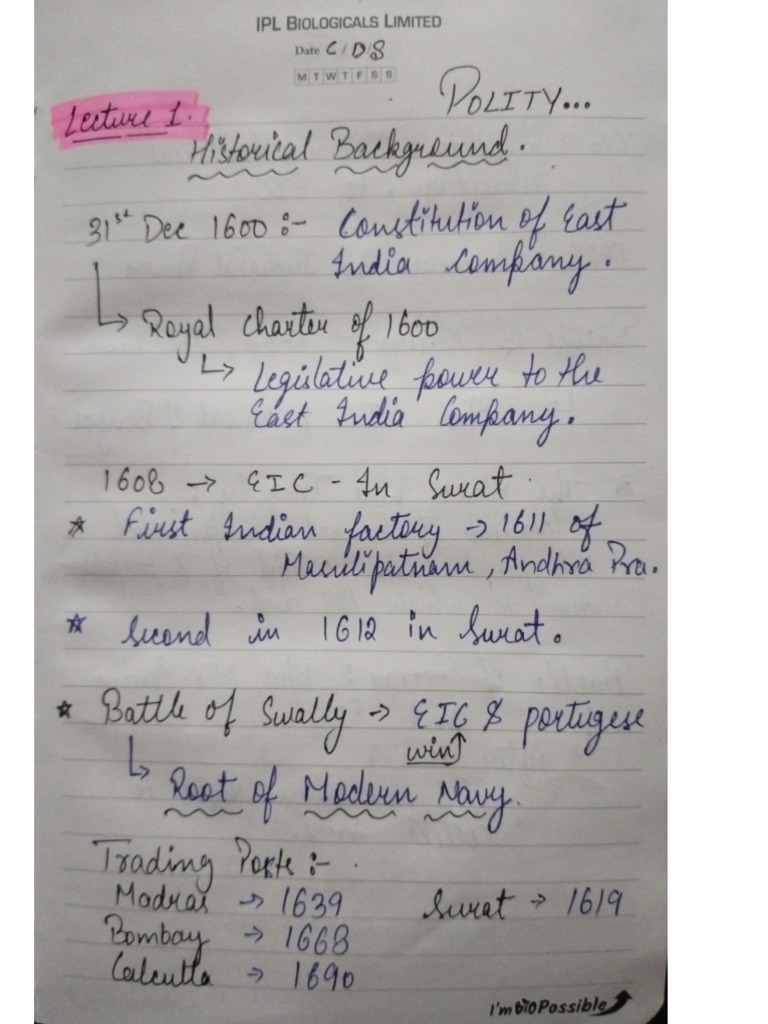 IPL BIOLOGICALS LIMITED
Date C/D/S
M T W T F S S
POLITY...
Lecture 1.
Historical Background.
31st Dec 1600 :- Constitution of East
India Company.
↳ Royal Charter of 1600
↳ Legislative power to the
East India Company.
1608 → EIC - In Surat.
☆ First Indian factory → 1611 of
Masulipatnam, Andhra Pra.
☆ Second in 1612 in Surat.
☆ Battle of Swally → EIC & portugese
win↑
↳ Root of Modern Navy.
Trading Posts :-
Madras → 1639 Surat → 1619
Bombay → 1668
Calcutta → 1690
I'm bioPossible